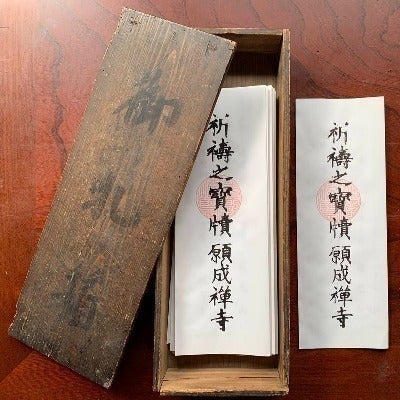 御
祈禱之寶牘 願成禪寺
祈禱之寶牘 願成禪寺